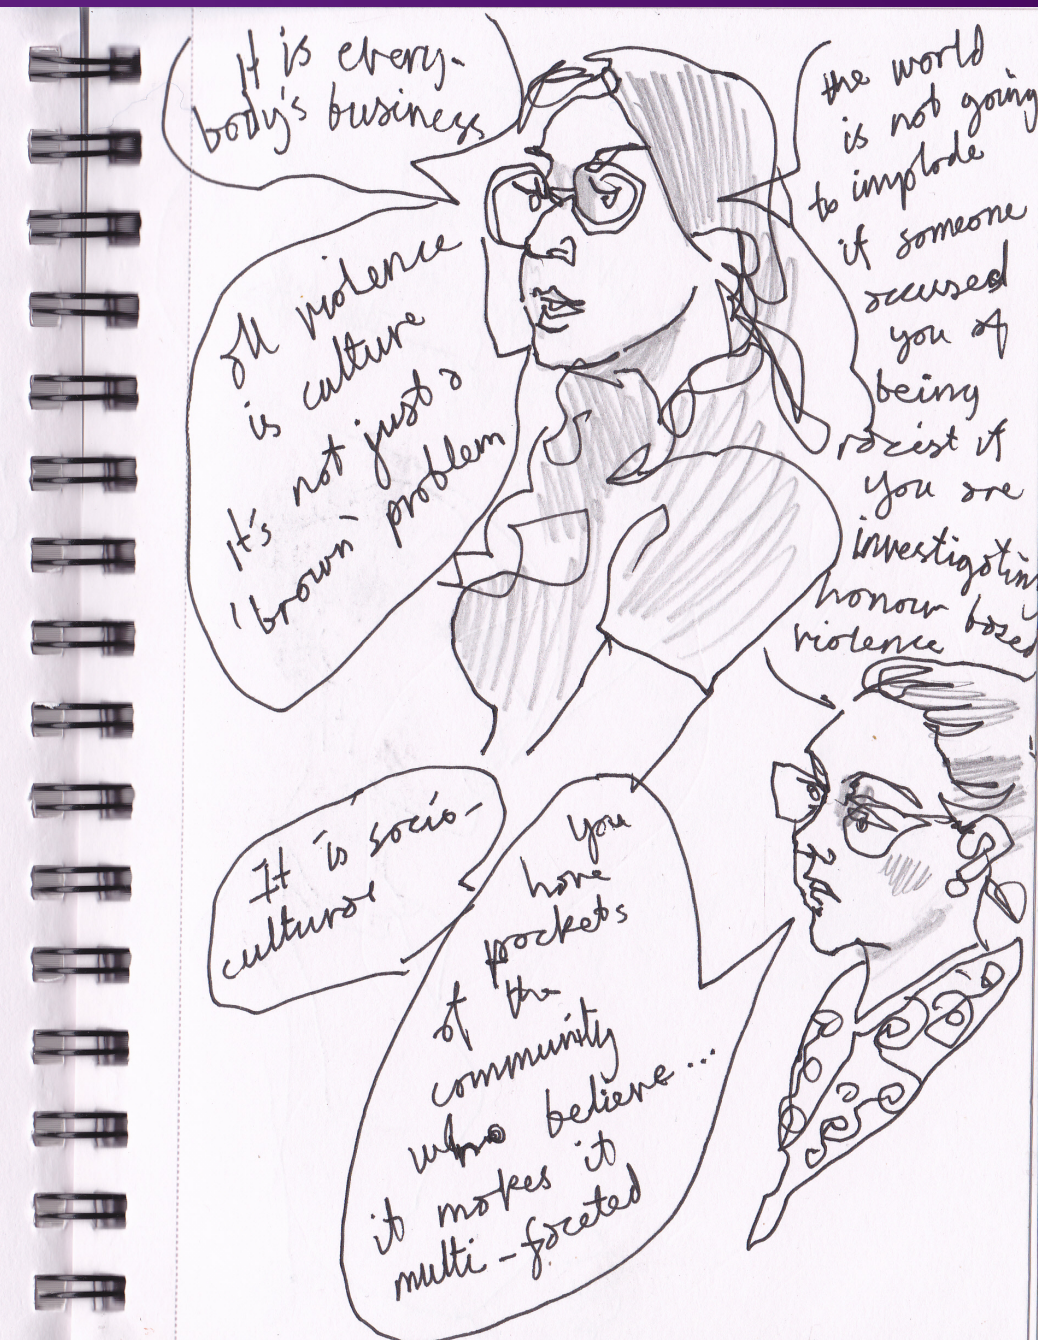 It is every-
body's business
the world
is not going
to implode
if someone
accused
you of
being
racist if
you are
investigating
honour based
violence
all violence
is culture
it's not just a
'brown' problem
It is socio-
cultural
you
have
pockets
of the
community
who believe...
it makes it
multi-faceted